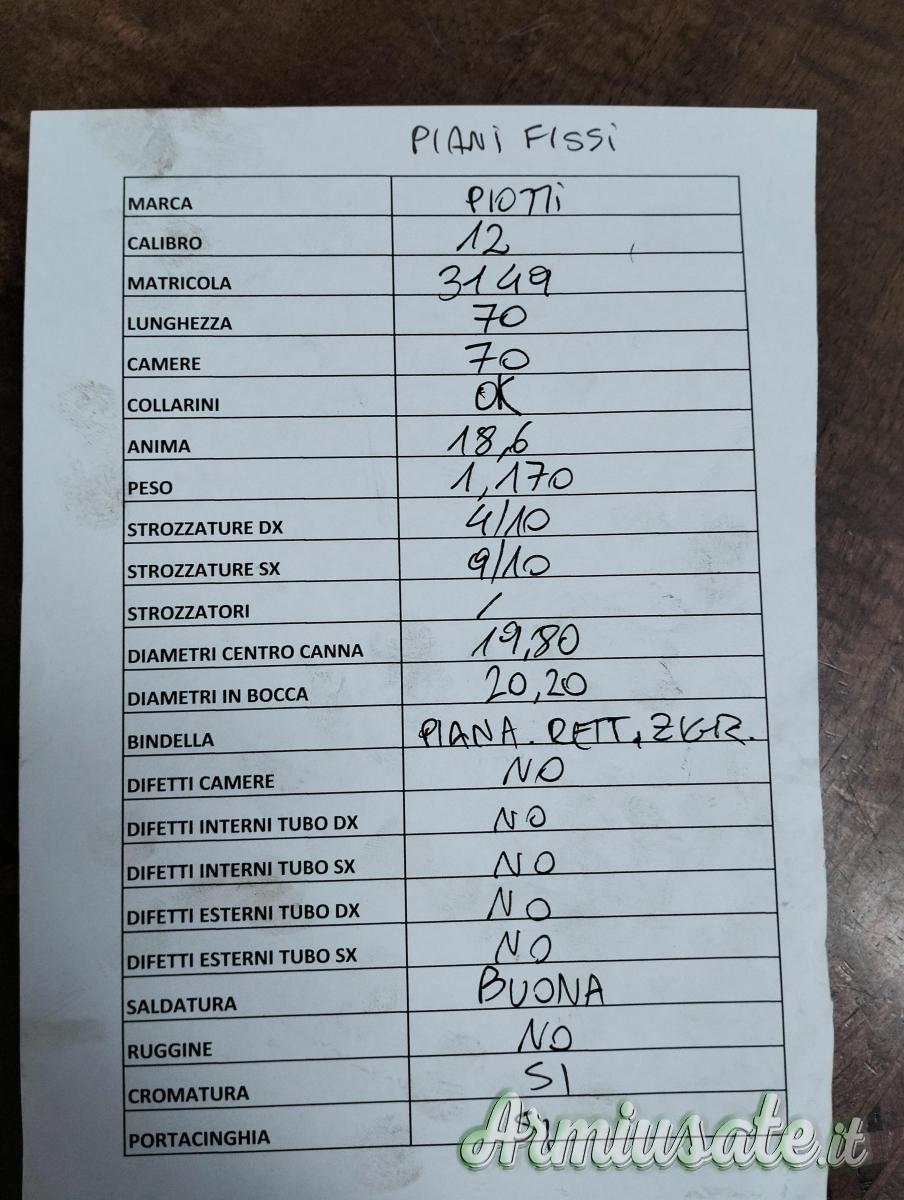 PIANI FISSI
MARCA PIOTTI
CALIBRO 12
MATRICOLA 3149
LUNGHEZZA 70
CAMERE 70
COLLARINI OK
ANIMA 18,6
PESO 1,170
STROZZATURE DX 4/10
STROZZATURE SX 9/10
STROZZATORI /
DIAMETRI CENTRO CANNA 19,80
DIAMETRI IN BOCCA 20,20
BINDELLA PIANA. RETT. ZIGR.
DIFETTI CAMERE NO
DIFETTI INTERNI TUBO DX NO
DIFETTI INTERNI TUBO SX NO
DIFETTI ESTERNI TUBO DX NO
DIFETTI ESTERNI TUBO SX NO
SALDATURA BUONA
RUGGINE NO
CROMATURA SI
PORTACINGHIA
Armiusate.it